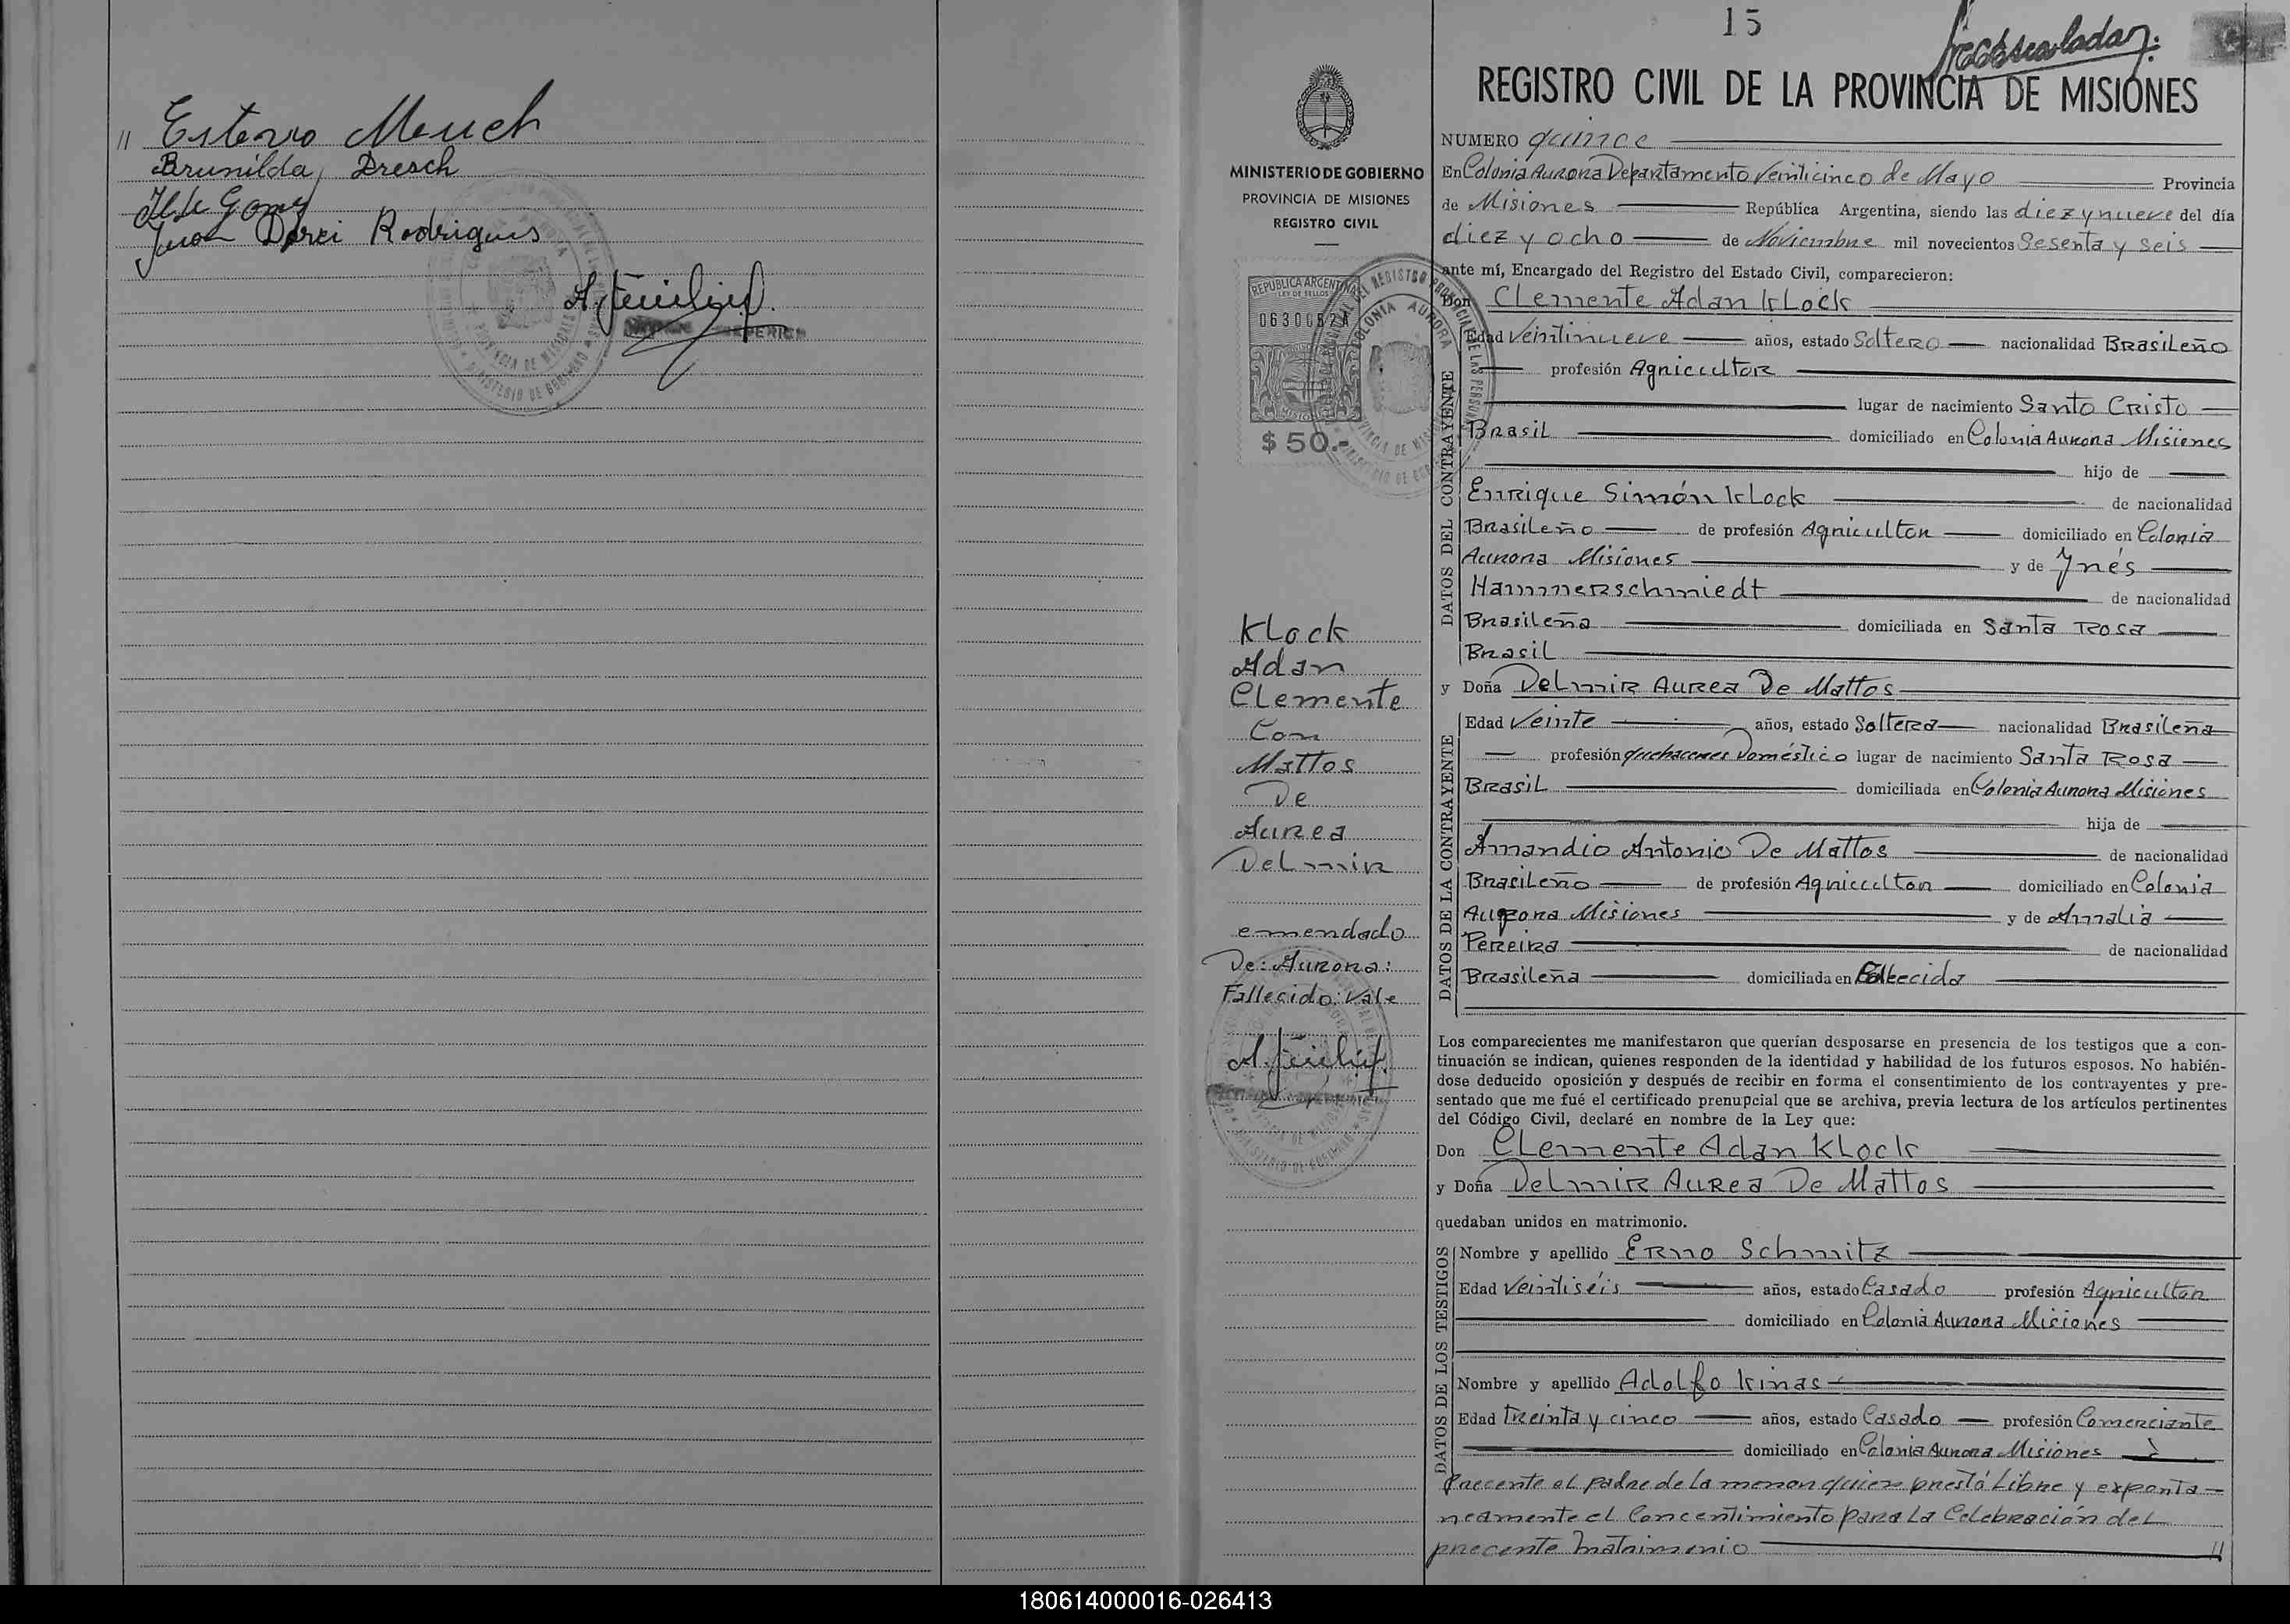 // Estervo Meuch
Brunilda Dresch
Juan Darci Rodrigues
15
REGISTRO CIVIL DE LA PROVINCIA DE MISIONES
MINISTERIO DE GOBIERNO
PROVINCIA DE MISIONES
REGISTRO CIVIL
REPUBLICA ARGENTINA
LEY DE SELLOS
$ 50.-
Klock
Adan
Clemente
Con
Mattos
De
Aurea
Delmir
emendado
De: Aurora:
Fallecido: Vale
NUMERO quince
En Colonia Aurora Departamento Veinticinco de Mayo Provincia
de Misiones República Argentina, siendo las diez y nueve del día
diez y ocho de Noviembre mil novecientos Sesenta y seis
ante mí, Encargado del Registro del Estado Civil, comparecieron:
Don Clemente Adan Klock
DATOS DEL CONTRAYENTE
Edad Veintinueve años, estado Soltero nacionalidad Brasileño
profesión Agricultor
lugar de nacimiento Santo Cristo
Brasil domiciliado en Colonia Aurora Misiones
hijo de
Enrique Simón Klock de nacionalidad
Brasileño de profesión Agricultor domiciliado en Colonia
Aurora Misiones y de Ynés
Hammerschmiedt de nacionalidad
Brasileña domiciliada en Santa Rosa
Brasil
y Doña Delmir Aurea De Mattos
DATOS DE LA CONTRAYENTE
Edad Veinte años, estado Soltera nacionalidad Brasileña
profesión quehaceres Doméstico lugar de nacimiento Santa Rosa
Brasil domiciliada en Colonia Aurora Misiones
hija de
Amandio Antonio De Mattos de nacionalidad
Brasileño de profesión Agricultor domiciliado en Colonia
Aurora Misiones y de Amalia
Pereira de nacionalidad
Brasileña domiciliada en Fallecida
Los comparecientes me manifestaron que querían desposarse en presencia de los testigos que a con-
tinuación se indican, quienes responden de la identidad y habilidad de los futuros esposos. No habién-
dose deducido oposición y después de recibir en forma el consentimiento de los contrayentes y pre-
sentado que me fué el certificado prenupcial que se archiva, previa lectura de los artículos pertinentes
del Código Civil, declaré en nombre de la Ley que:
Don Clemente Adan Klock
y Doña Delmir Aurea De Mattos
quedaban unidos en matrimonio.
DATOS DE LOS TESTIGOS
Nombre y apellido Erno Schmitz
Edad Veintiséis años, estado Casado profesión Agricultor
domiciliado en Colonia Aurora Misiones
Nombre y apellido Adolfo Kinas
Edad Treinta y cinco años, estado Casado profesión Comerciante
domiciliado en Colonia Aurora Misiones
Precente el padre de la menor quien prestó Libre y exponta-
neamente el Concentimiento para La Celebración del
precente Matrimonio //
180614000016-026413